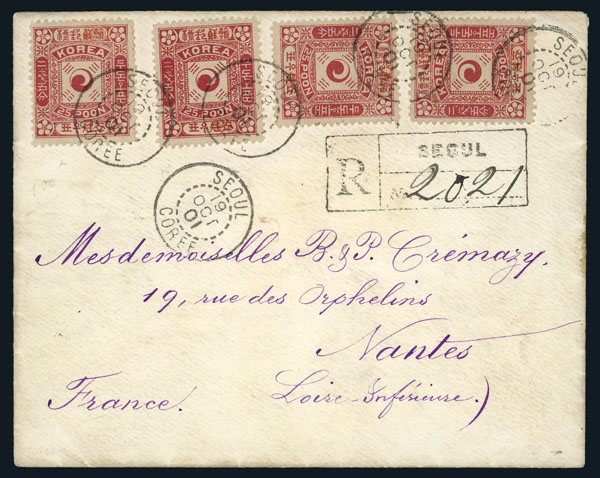 KOREA
25 POON
KOREA
25 POON
KOREA
25 POON
KOREA
25 POON
SEOUL
19
OCT
01
COREE
R
SEOUL
N 2021
Mesdemoiselles B. & P. Crémazy,
19, rue des Orphelins
Nantes
France. Loire-Inférieure.)